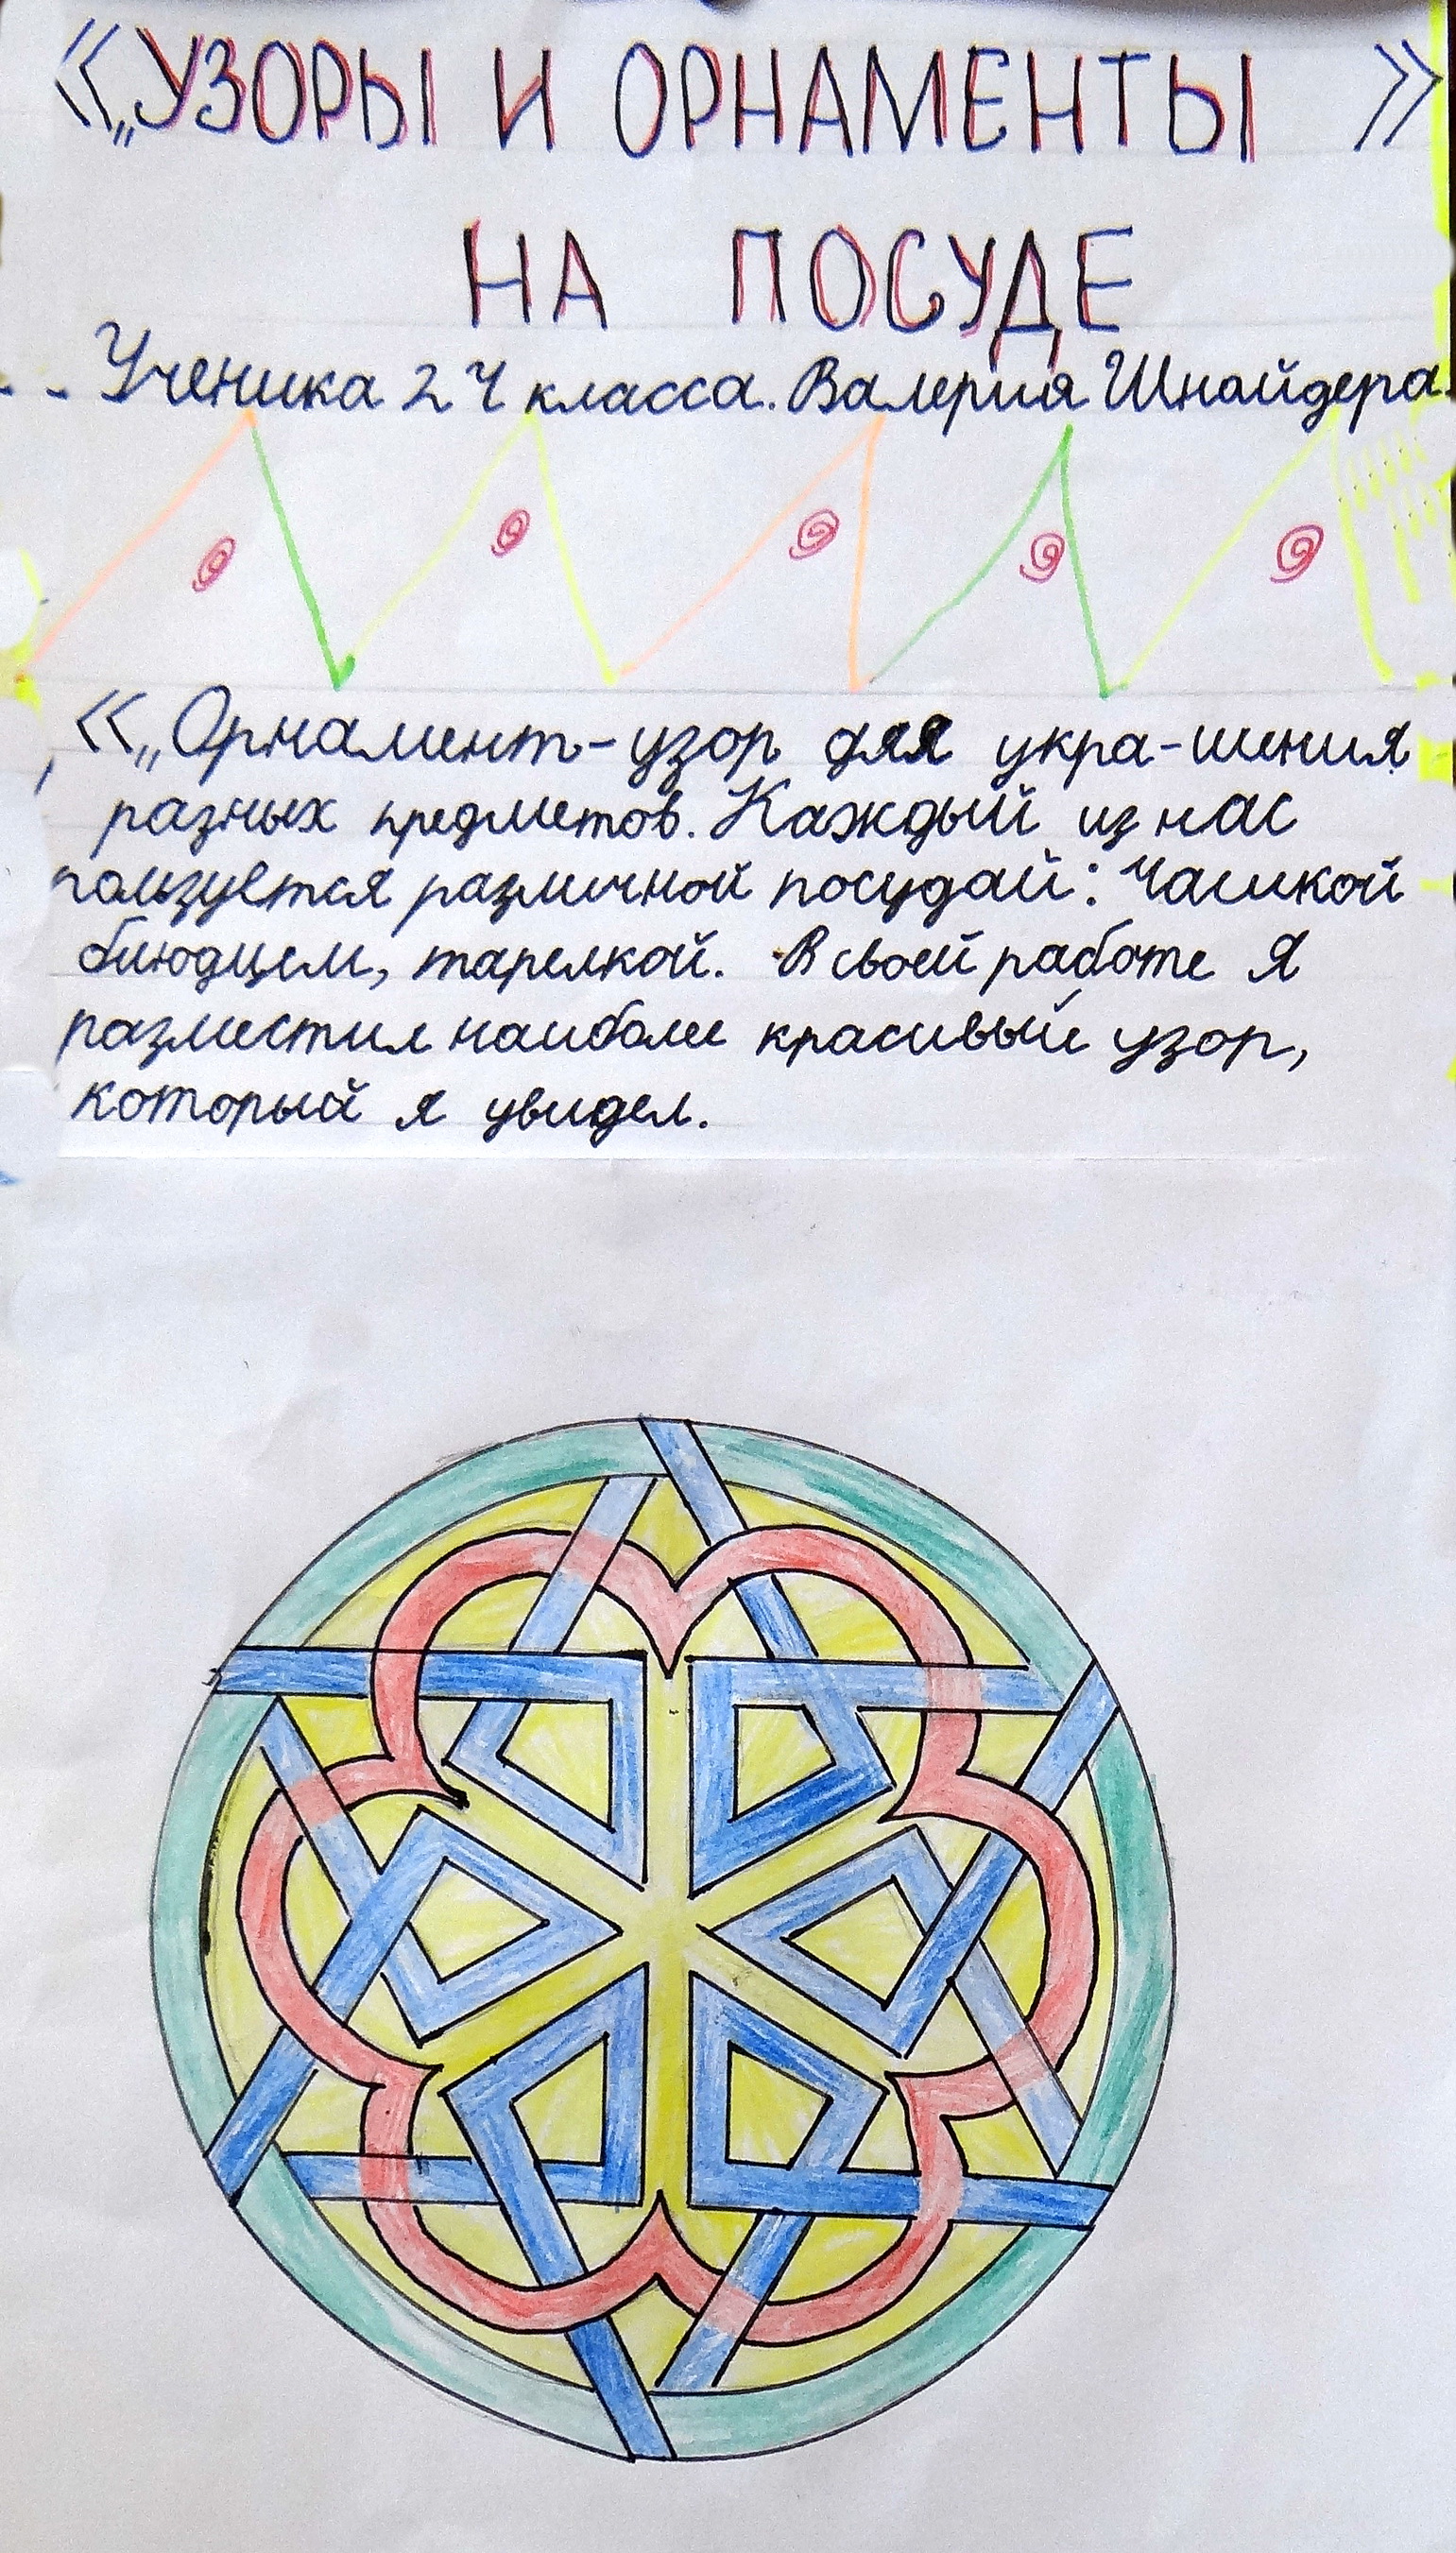 «„УЗОРЫ И ОРНАМЕНТЫ »
НА ПОСУДЕ
Ученика 2 Ч класса. Валерия Шнайдера.
«„Орнамент-узор для укра-шения
разных предметов. Каждый из нас
пользуется различной посудай: Чашкой
блюдцем, тарелкой. В своей работе Я
разместил наиболее красивый узор,
который я увидел.